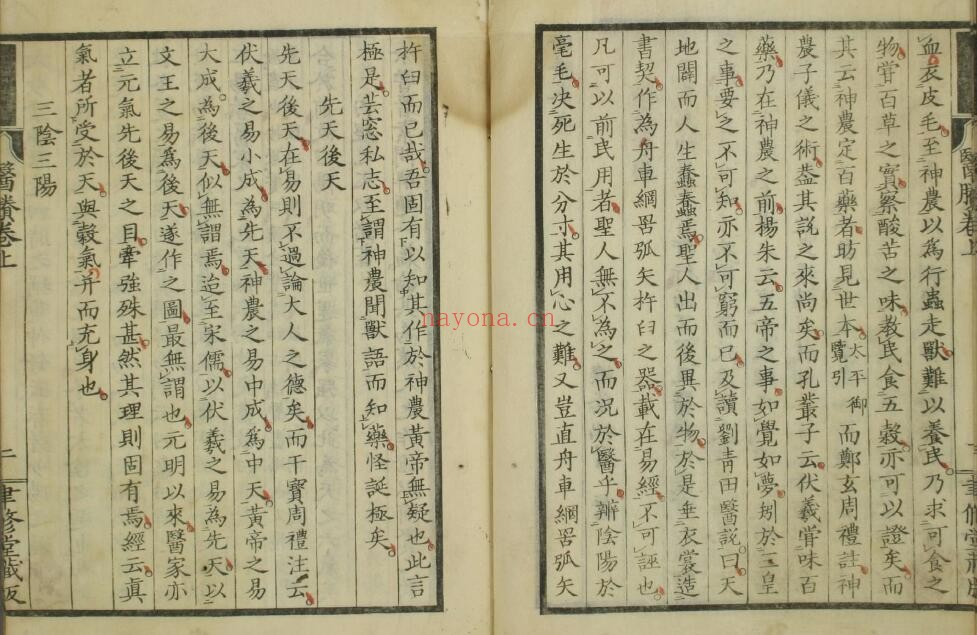 血衣皮毛至神農以為行蟲走獸難以養民乃求可食之
物甞百草之實察酸苦之味教民食五穀亦可以證矣而
其云神農定百藥者昉見世本太平御覽引而鄭玄周禮註神
農子儀之術葢其説之來尚矣而孔叢子云伏羲甞味百
藥乃在神農之前揚朱云五帝之事如覺如夢矧於三皇
之事要之不可知亦不可窮而已及讀劉青田醫説曰天
地闢而人生蠢蠢焉聖人出而後異於物於是垂衣裳造
書契作為舟車綱罟弧矢杵臼之器載在易經不可誣也
凡可以前民用者聖人無不為之而況於醫乎辨陰陽於
毫毛决死生於分寸其用心之難又豈直舟車綱罟弧矢
杵臼而已哉吾固有以知其作於神農黃帝無疑也此言
極是芸窓私志至謂神農聞獸語而知藥怪誕極矣
先天後天
先天後天在易則不過論大人之德矣而干寶周禮注云
伏羲之易小成為先天神農之易中成為中天黃帝之易
大成為後天似無謂焉迨至宋儒以伏羲之易為先天以
文王之易為後天遂作之圖最無謂也元明以來醫家亦
立元氣先後天之目牽強殊甚然其理則固有焉經云眞
氣者所受於天與穀氣并而充身也
三陰三陽
醫賸卷上
二
聿修堂藏板
nayona.cn